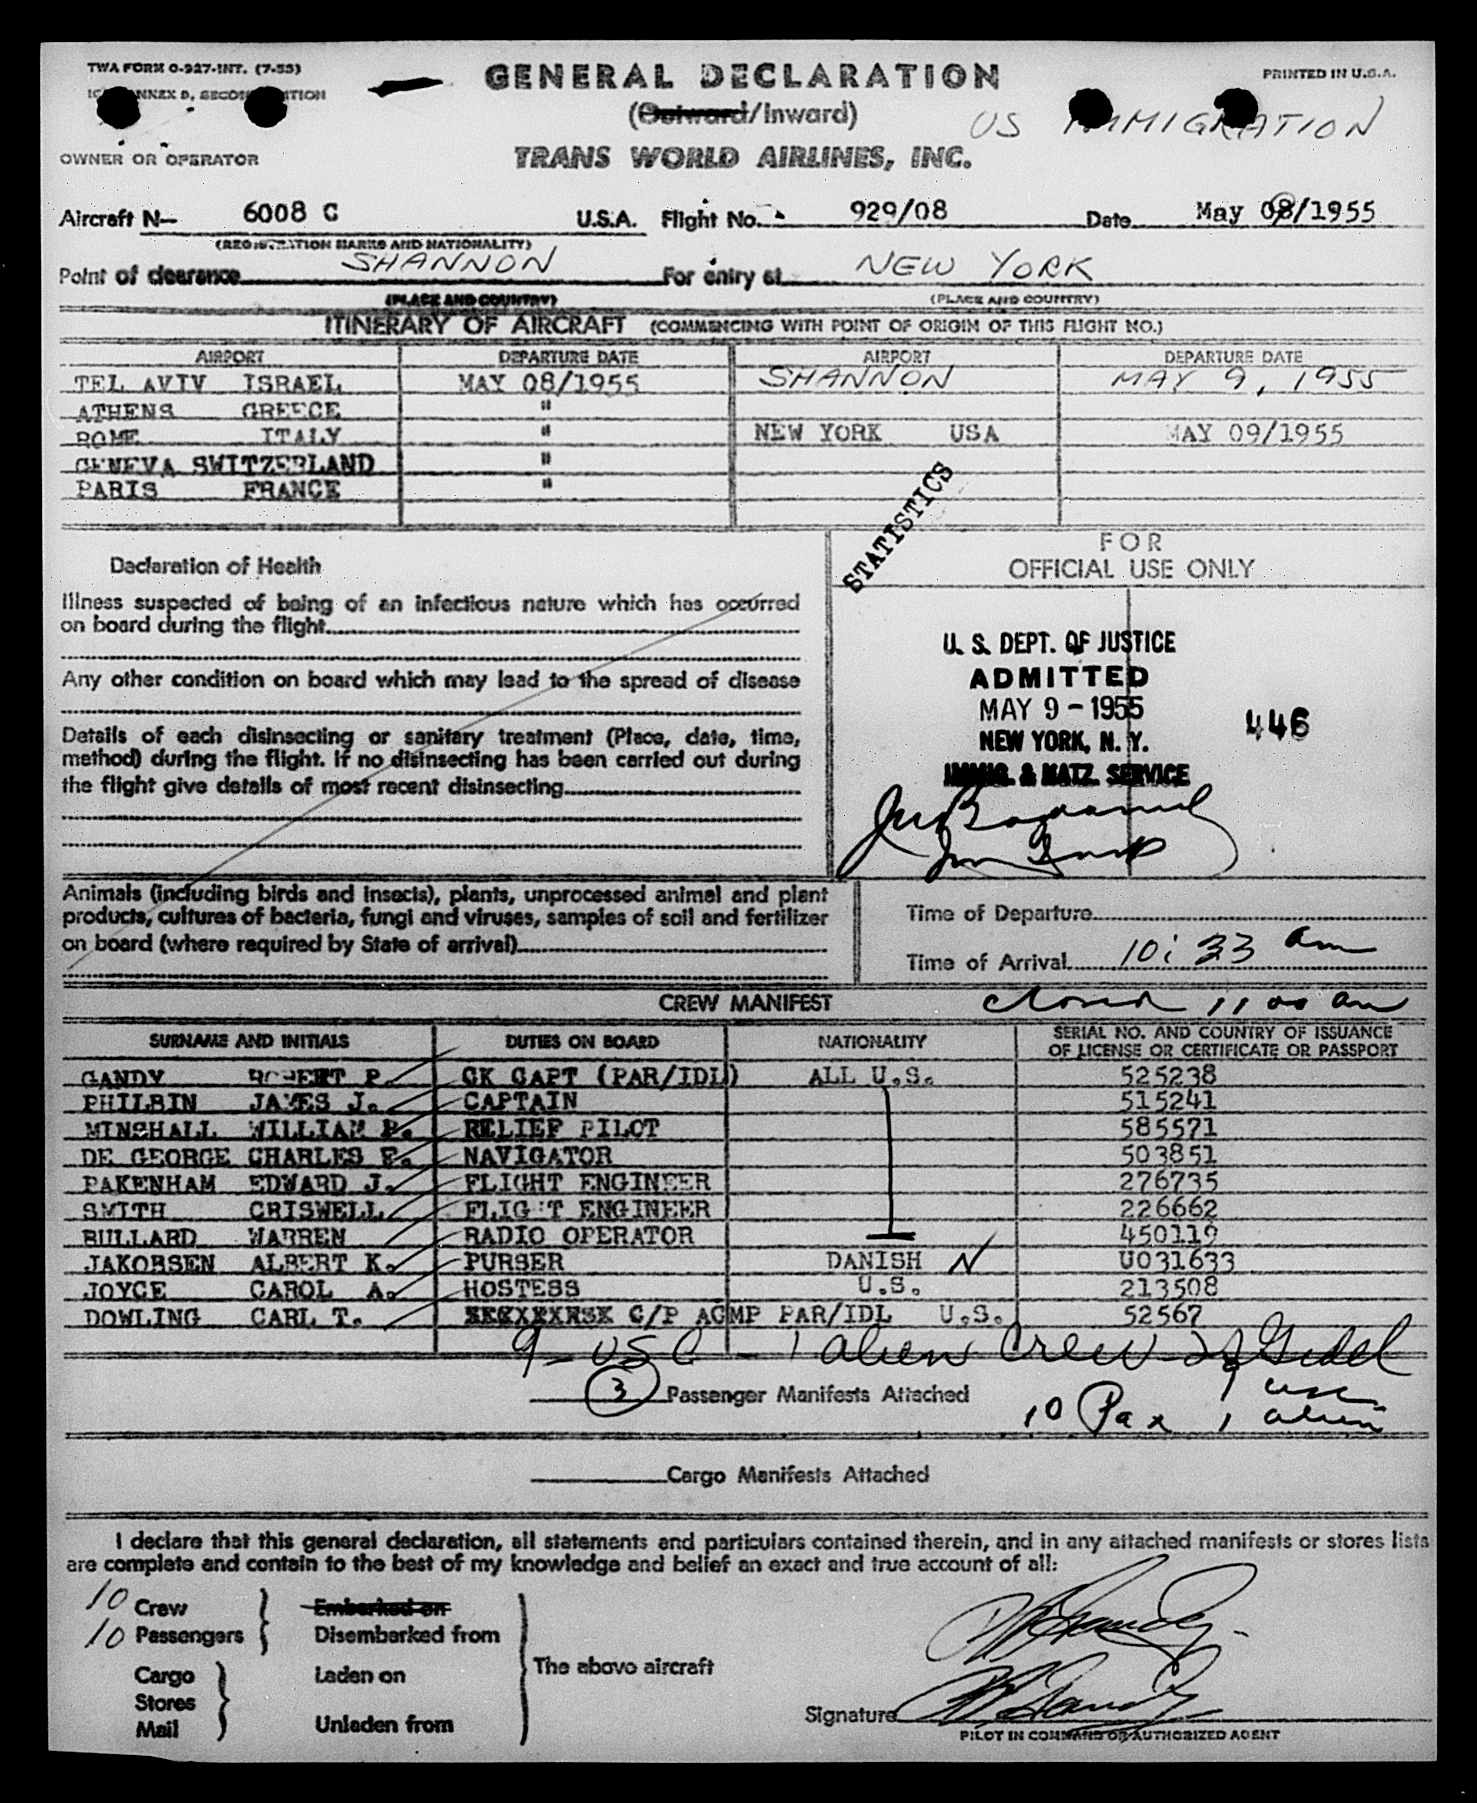 TWA FORM O-927-INT. (7-53)
GENERAL DECLARATION
PRINTED IN U.S.A.
(Outward/Inward)
US IMMIGRATION
OWNER OR OPERATOR
TRANS WORLD AIRLINES, INC.
Aircraft N— 6008 C U.S.A. Flight No. 929/08 Date May 09/1955
(REGISTRATION MARKS AND NATIONALITY)
Point of clearance SHANNON For entry at NEW YORK
(PLACE AND COUNTRY) (PLACE AND COUNTRY)
ITINERARY OF AIRCRAFT (COMMENCING WITH POINT OF ORIGIN OF THIS FLIGHT NO.)
AIRPORT DEPARTURE DATE AIRPORT DEPARTURE DATE
TEL AVIV ISRAEL MAY 08/1955 SHANNON MAY 9, 1955
ATHENS GREECE "
ROME ITALY " NEW YORK USA MAY 09/1955
GENEVA SWITZERLAND "
PARIS FRANCE "
STATISTICS
FOR
OFFICIAL USE ONLY
Declaration of Health
Illness suspected of being of an infectious nature which has occurred
on board during the flight
Any other condition on board which may lead to the spread of disease
Details of each disinsecting or sanitary treatment (Place, date, time,
method) during the flight. If no disinsecting has been carried out during
the flight give details of most recent disinsecting
U. S. DEPT. OF JUSTICE
ADMITTED
MAY 9 - 1955
446
NEW YORK, N. Y.
IMMIG. & NATZ. SERVICE
Animals (including birds and insects), plants, unprocessed animal and plant
products, cultures of bacteria, fungi and viruses, samples of soil and fertilizer
on board (where required by State of arrival)
Time of Departure
Time of Arrival 10:33 am
CREW MANIFEST closed 11 00 am
SURNAME AND INITIALS DUTIES ON BOARD NATIONALITY SERIAL NO. AND COUNTRY OF ISSUANCE
OF LICENSE OR CERTIFICATE OR PASSPORT
GANDY ROBERT P. CK CAPT (PAR/IDL) ALL U.S. 525238
PHILBIN JAMES J. CAPTAIN 515241
MINSHALL WILLIAM P. RELIEF PILOT 585571
DE GEORGE CHARLES F. NAVIGATOR 503851
PAKENHAM EDWARD J. FLIGHT ENGINEER 276735
SMITH CRISWELL FLIGHT ENGINEER 226662
BULLARD WARREN RADIO OPERATOR 450119
JAKOBSEN ALBERT K. PURSER DANISH N U031633
JOYCE CAROL A. HOSTESS U.S. 213508
DOWLING CARL T. C/P ACMP PAR/IDL U.S. 52567
9 - USC - 1 alien Crew
3 Passenger Manifests Attached
10 Pax 9 usc
1 alien
Cargo Manifests Attached
I declare that this general declaration, all statements and particulars contained therein, and in any attached manifests or stores lists
are complete and contain to the best of my knowledge and belief an exact and true account of all:
10 Crew Embarked on
10 Passengers Disembarked from
The above aircraft
Cargo Laden on
Stores
Mail Unladen from
Signature
PILOT IN COMMAND OR AUTHORIZED AGENT